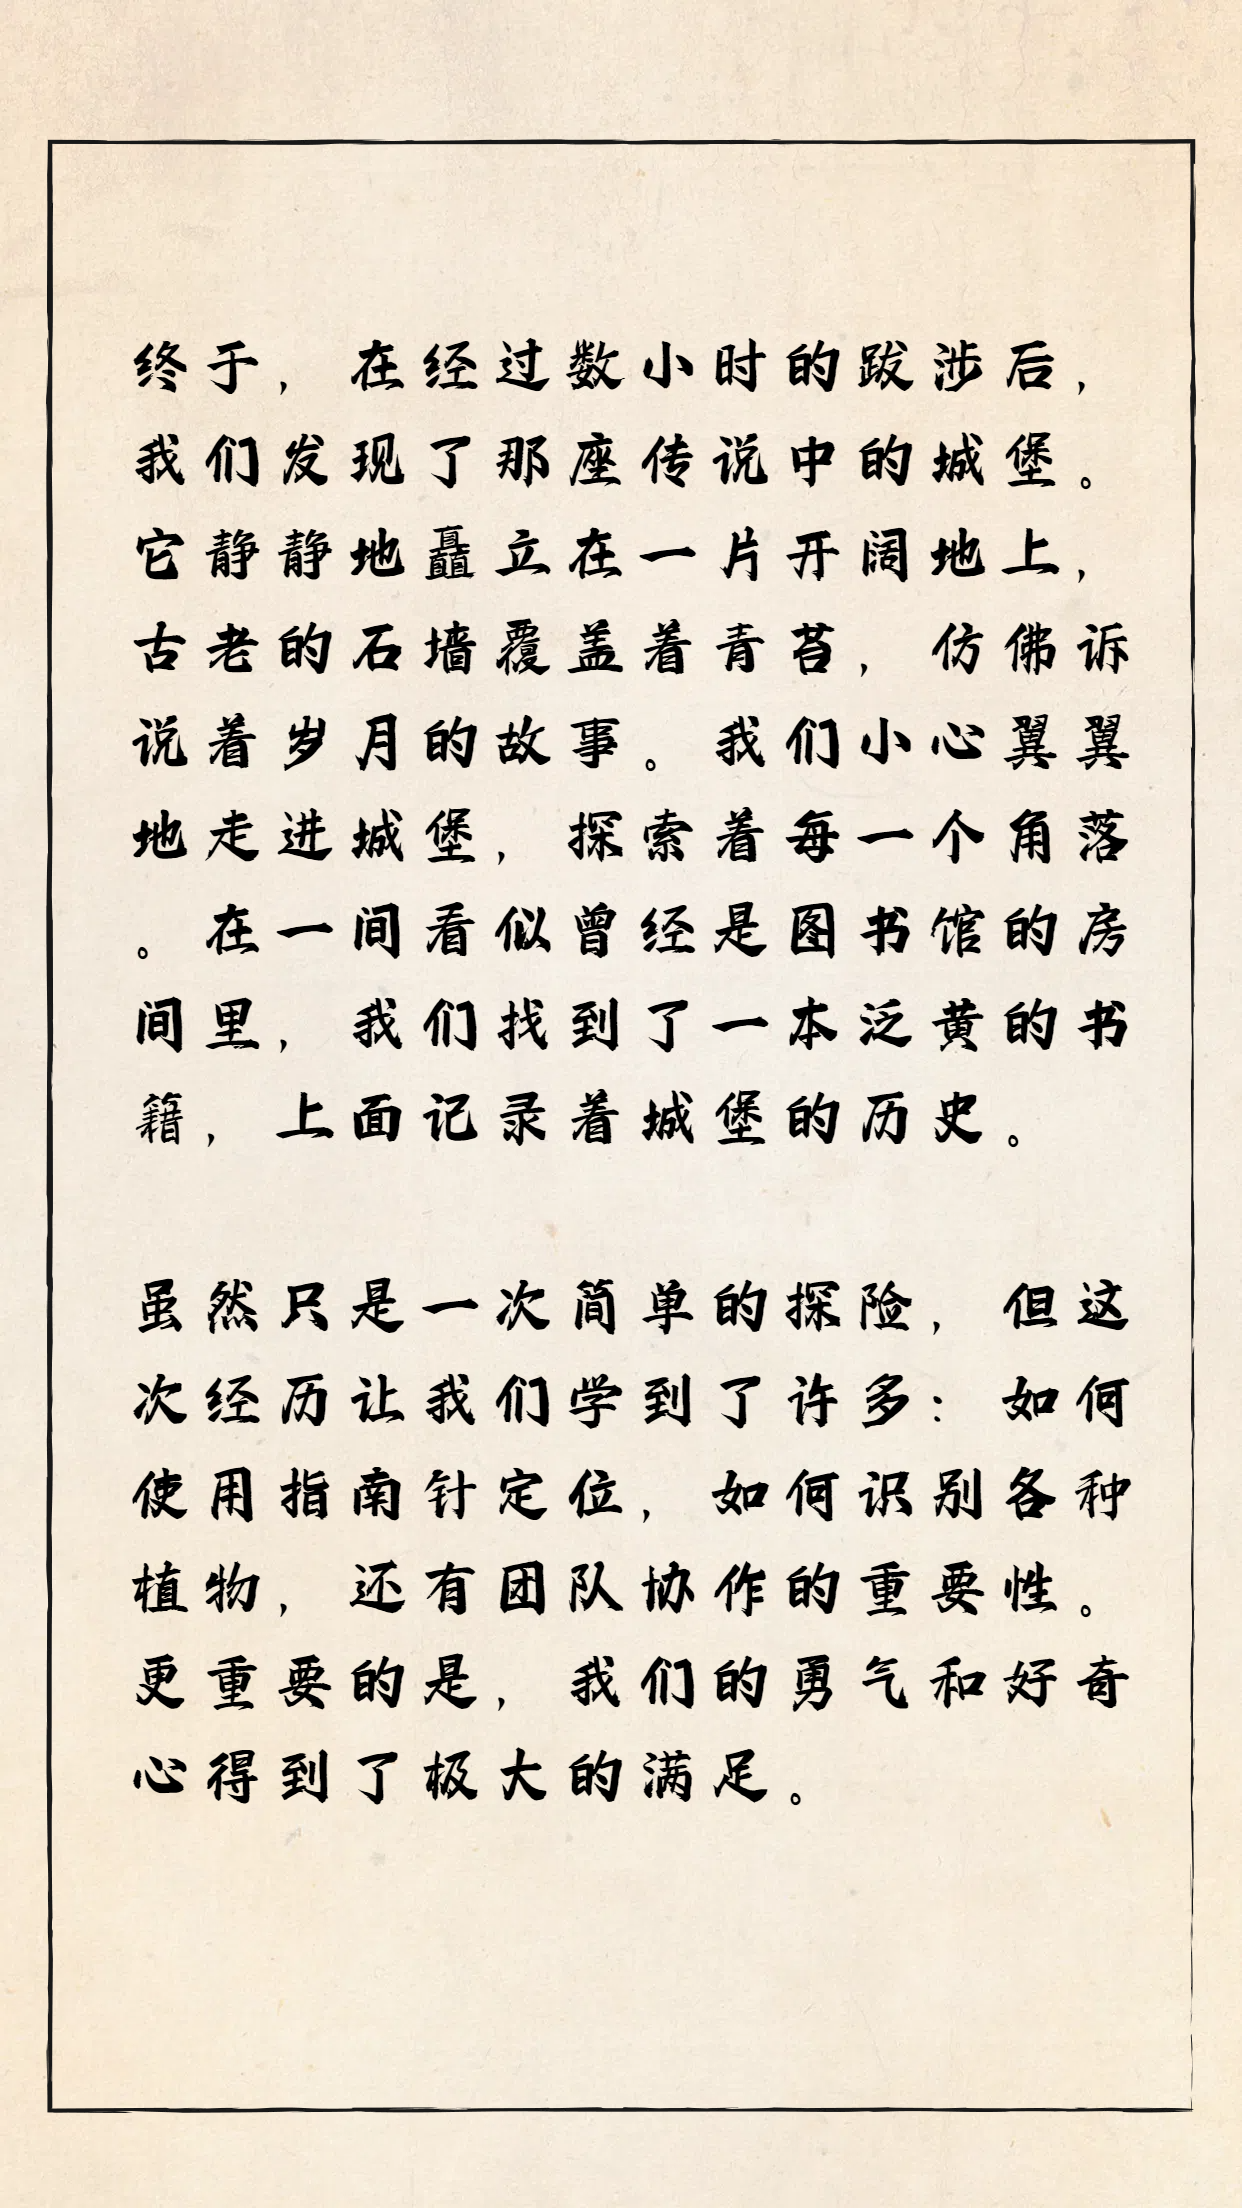 终于，在经过数小时的跋涉后，
我们发现了那座传说中的城堡。
它静静地矗立在一片开阔地上，
古老的石墙覆盖着青苔，仿佛诉
说着岁月的故事。我们小心翼翼
地走进城堡，探索着每一个角落
。在一间看似曾经是图书馆的房
间里，我们找到了一本泛黄的书
籍，上面记录着城堡的历史。
虽然只是一次简单的探险，但这
次经历让我们学到了许多：如何
使用指南针定位，如何识别各种
植物，还有团队协作的重要性。
更重要的是，我们的勇气和好奇
心得到了极大的满足。